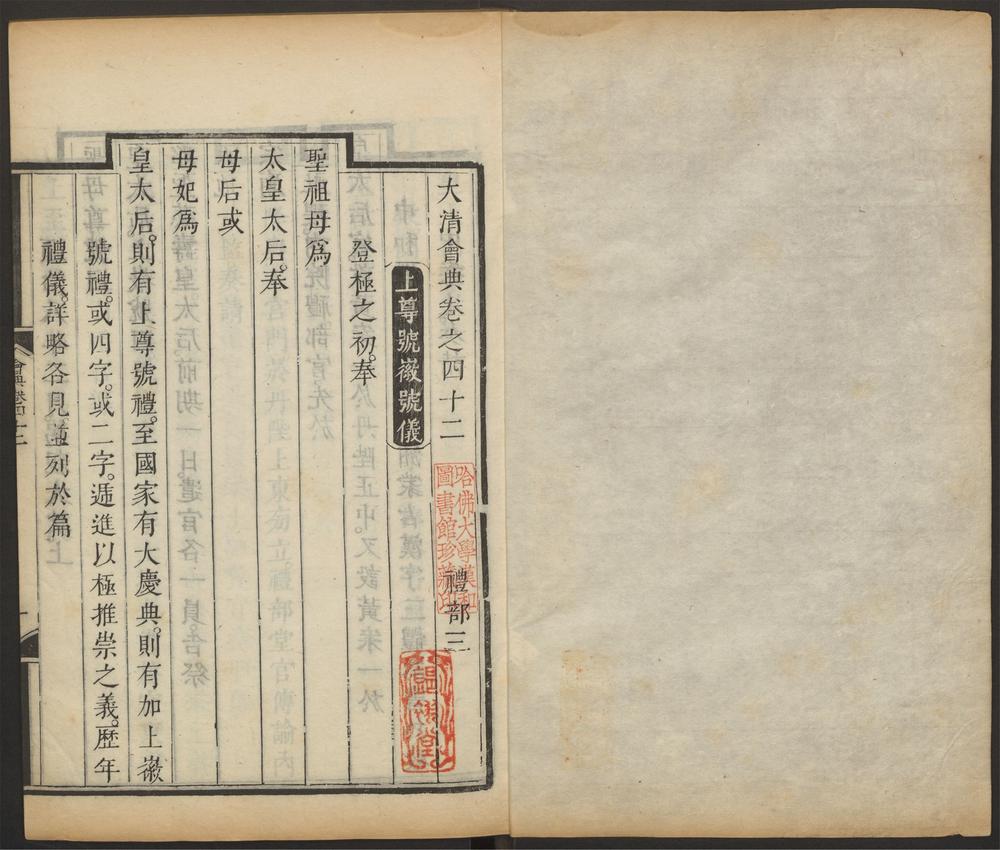 大清會典卷之四十二
禮部三
上尊號徽號儀
登極之初。奉
聖祖母爲
太皇太后。奉
母后或
母妃爲
皇太后。則有上尊號禮。至國家有大慶典。則有加上徽
號禮。或四字。或二字。遞進以極推崇之義。歷年
禮儀。詳略各見。並列於篇
哈佛大學漢和
圖書館珍藏印